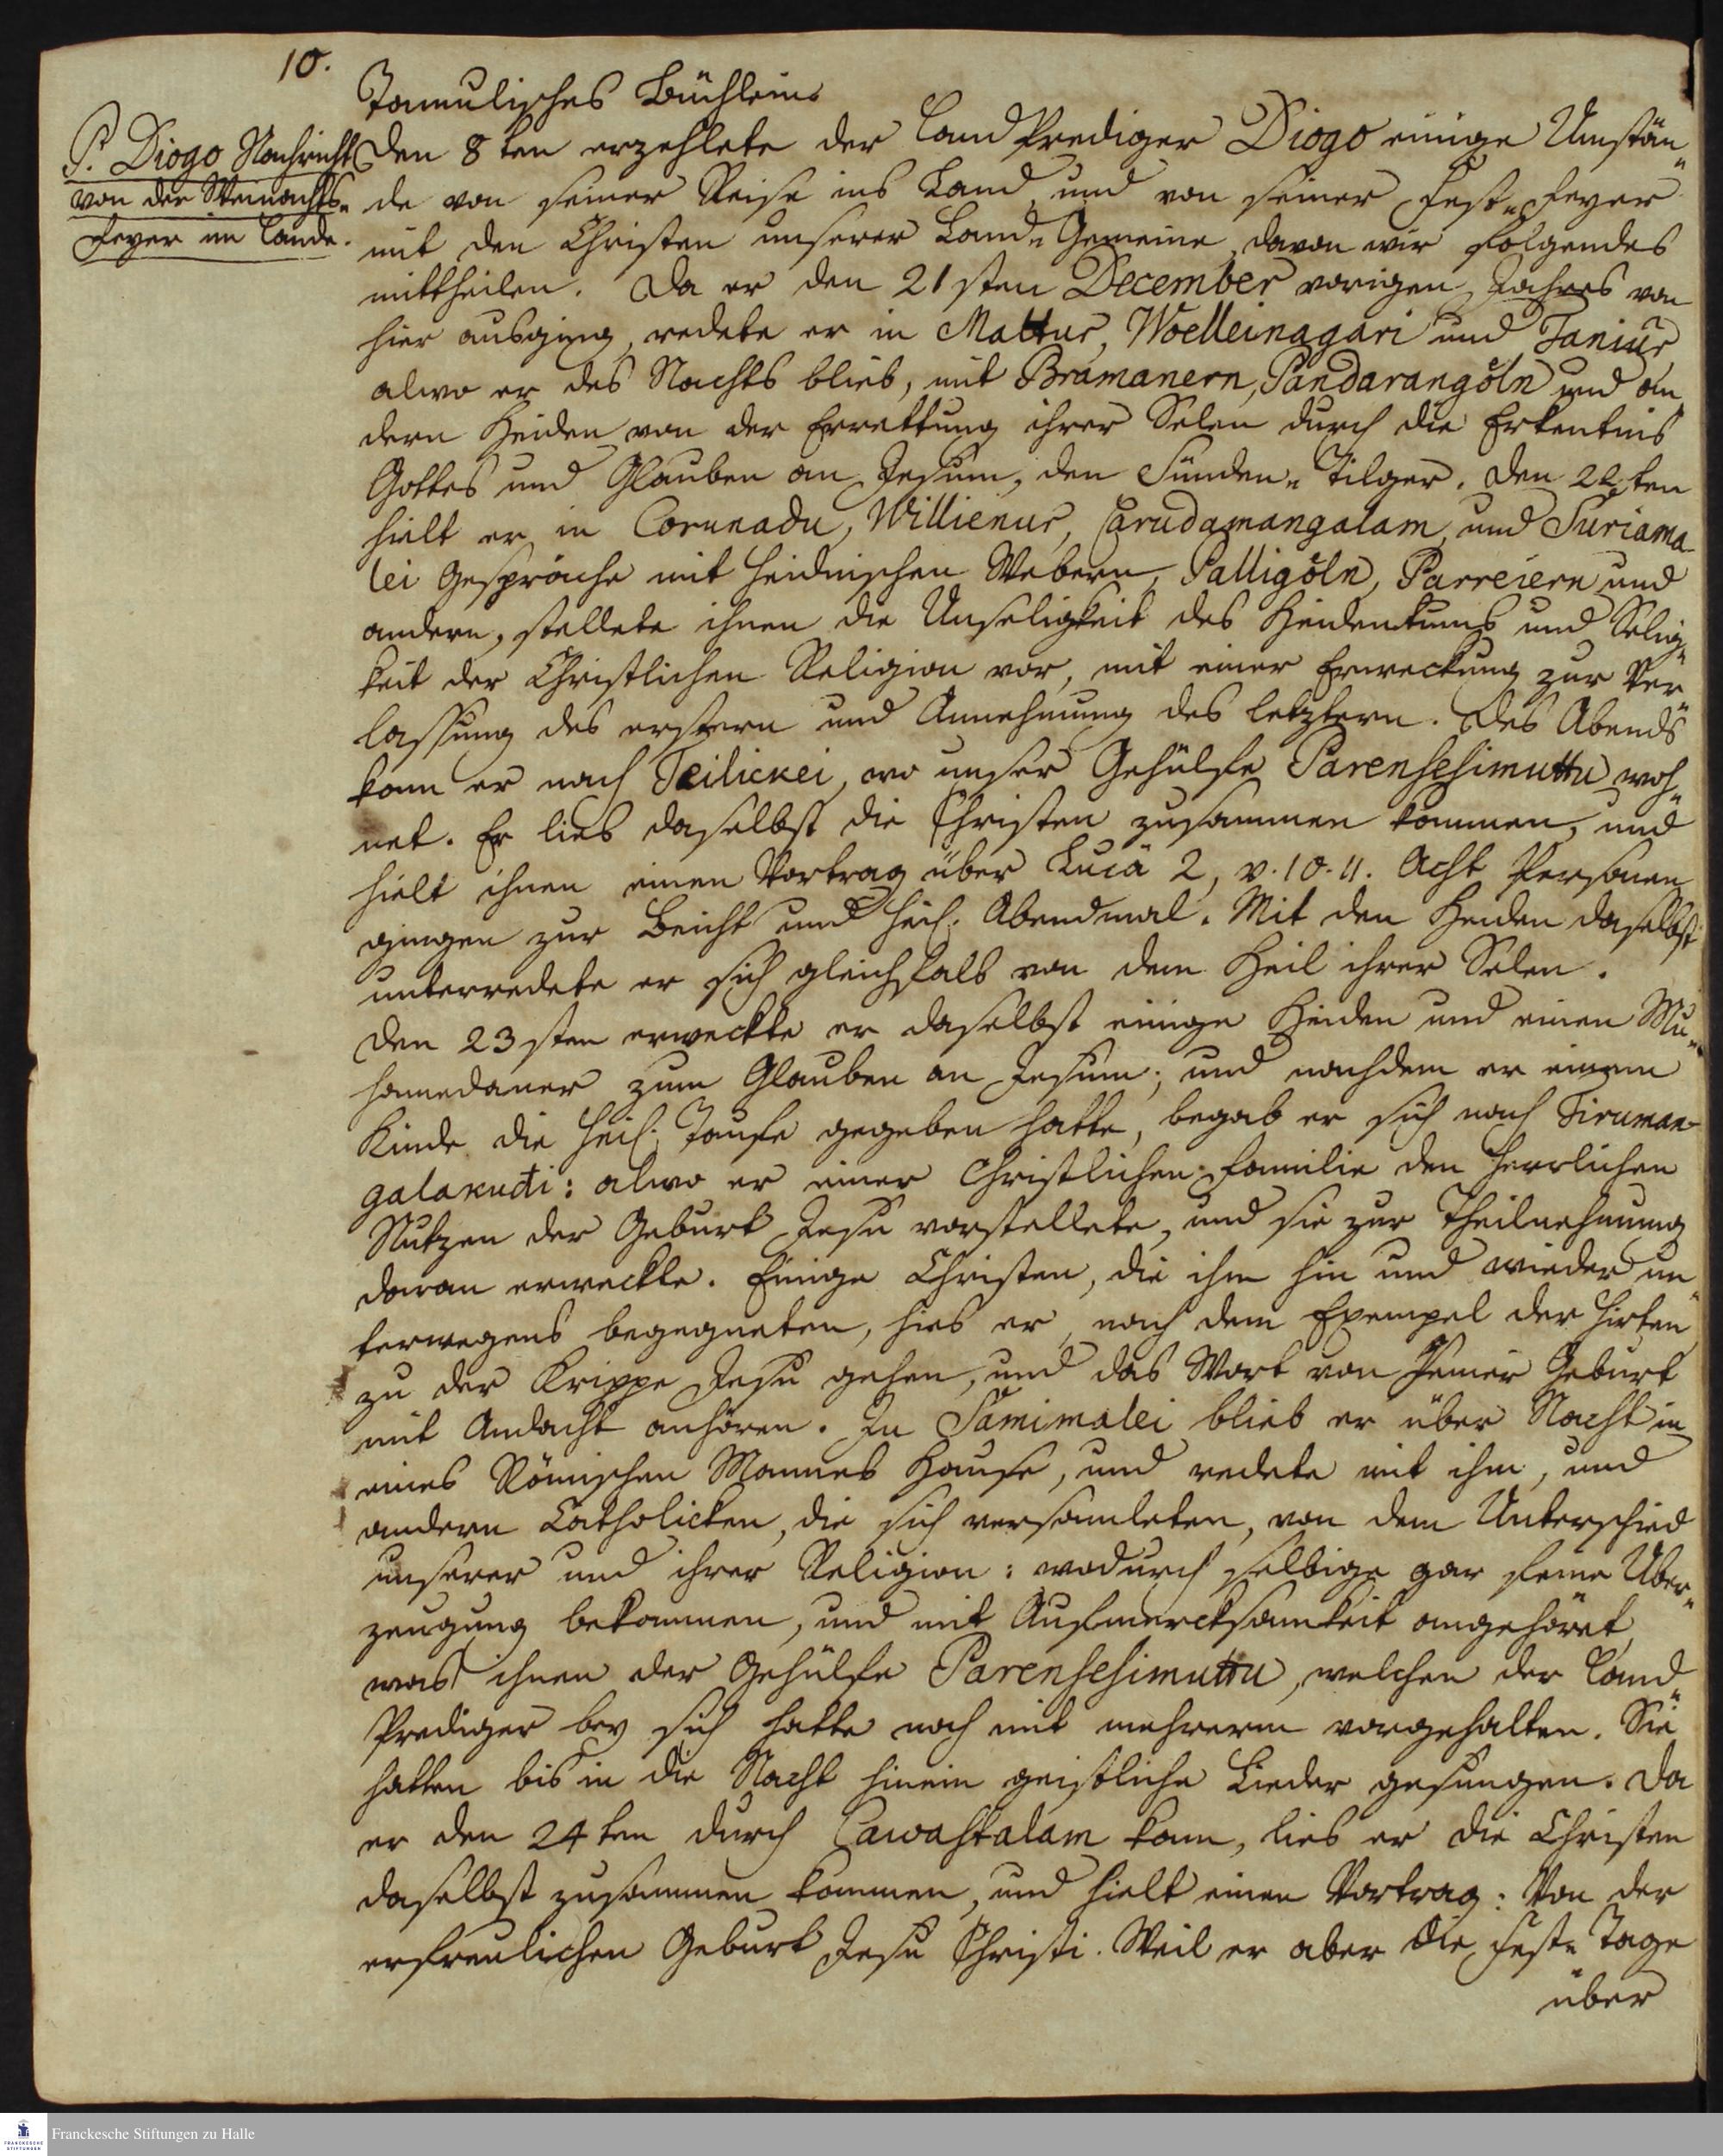 10.
Tamulisches Büchleins
P. Diogo Nachricht
von der Weinachts-
Feyer im Lande.
Den 8ten erzehlete der Land Prediger Diogo einige Umstän-
de von seiner Reise ins Land und von seiner Fest-Feyer
mit den Christen unserer Land-Gemeine, davon wir folgendes
mittheilen. Da er den 21sten December vorigen Jahres von
hier ausging, redete er in Mattur, Woelleinagari und Taniúr
alwo er des Nachts blieb, mit Bramanern, Pandarangöln und an
dern Heiden von der Errettung ihrer Selen durch die Erkentnis
Gottes und Glauben an Jesum, den Sünden-Tilger. Den 22sten
hielt er in Corunadu, Willienur, Carudamangalam, und Suriama-
lei Gespräche mit heidnischen Webern, Palligöln, Parreiern und
andern, stellete ihnen die Unseligkeit des Heidentums und Selig-
keit der Christlichen Religion vor, mit einer Erweckung zur Ver-
lassung des erstern und Annehmung des letztern. Des Abends
kam er nach Teilickei, wo unser Gehülfe Parensesimuttu woh-
net. Er lies daselbst die Christen zusammen kommen, und
hielt ihnen einen Vortrag über Lucä 2, v. 10. 11. Acht Personen
gingen zur Beicht und heil. Abendmal. Mit den Heiden daselbst
unterredete er sich gleichfals von dem Heil ihrer Selen.
Den 23sten erweckte er daselbst einige Heiden und einen Mu-
hamedaner zum Glauben an Jesum; und nachdem er einem
Kinde die heil. Taufe gegeben hatte, begab er sich nach Tiruman-
galakudi: alwo er einer Christlichen Familie den herrlichen
Nutzen der Geburt Jesu vorstellete, und sie zur Theilnehmung
daran erweckte. Einige Christen, die ihm hin und wieder un-
terwegens begegneten, hies er, nach dem Exempel der Hirten
zu der Krippe Jesu gehen, und das Wort von seiner Geburt
mit Andacht anhören. In Samimalei blieb er über Nacht in
eines Römischen Mannes Hause, und redete mit ihm, und
andern Catholicken, die sich versamleten, von dem Unterschied
unserer und ihrer Religion: wodurch selbige gar feine Über-
zeugung bekommen, und mit Aufmercksamkeit angehöret,
was ihnen der Gehülfe Parensesimuttu, welchen der Land-
Prediger bey sich hatte noch mit mehrerm vorgehalten. Sie
hatten bis in die Nacht hinein geistliche Lieder gesungen. Da
er den 24ten durch Cawastalam kam, lies er die Christen
daselbst zusammen kommen, und hielt einen Vortrag: Von der
erfreulichen Geburt Jesu Christi. Weil er aber die Fest-Tage
über
Franckesche Stiftungen zu Halle